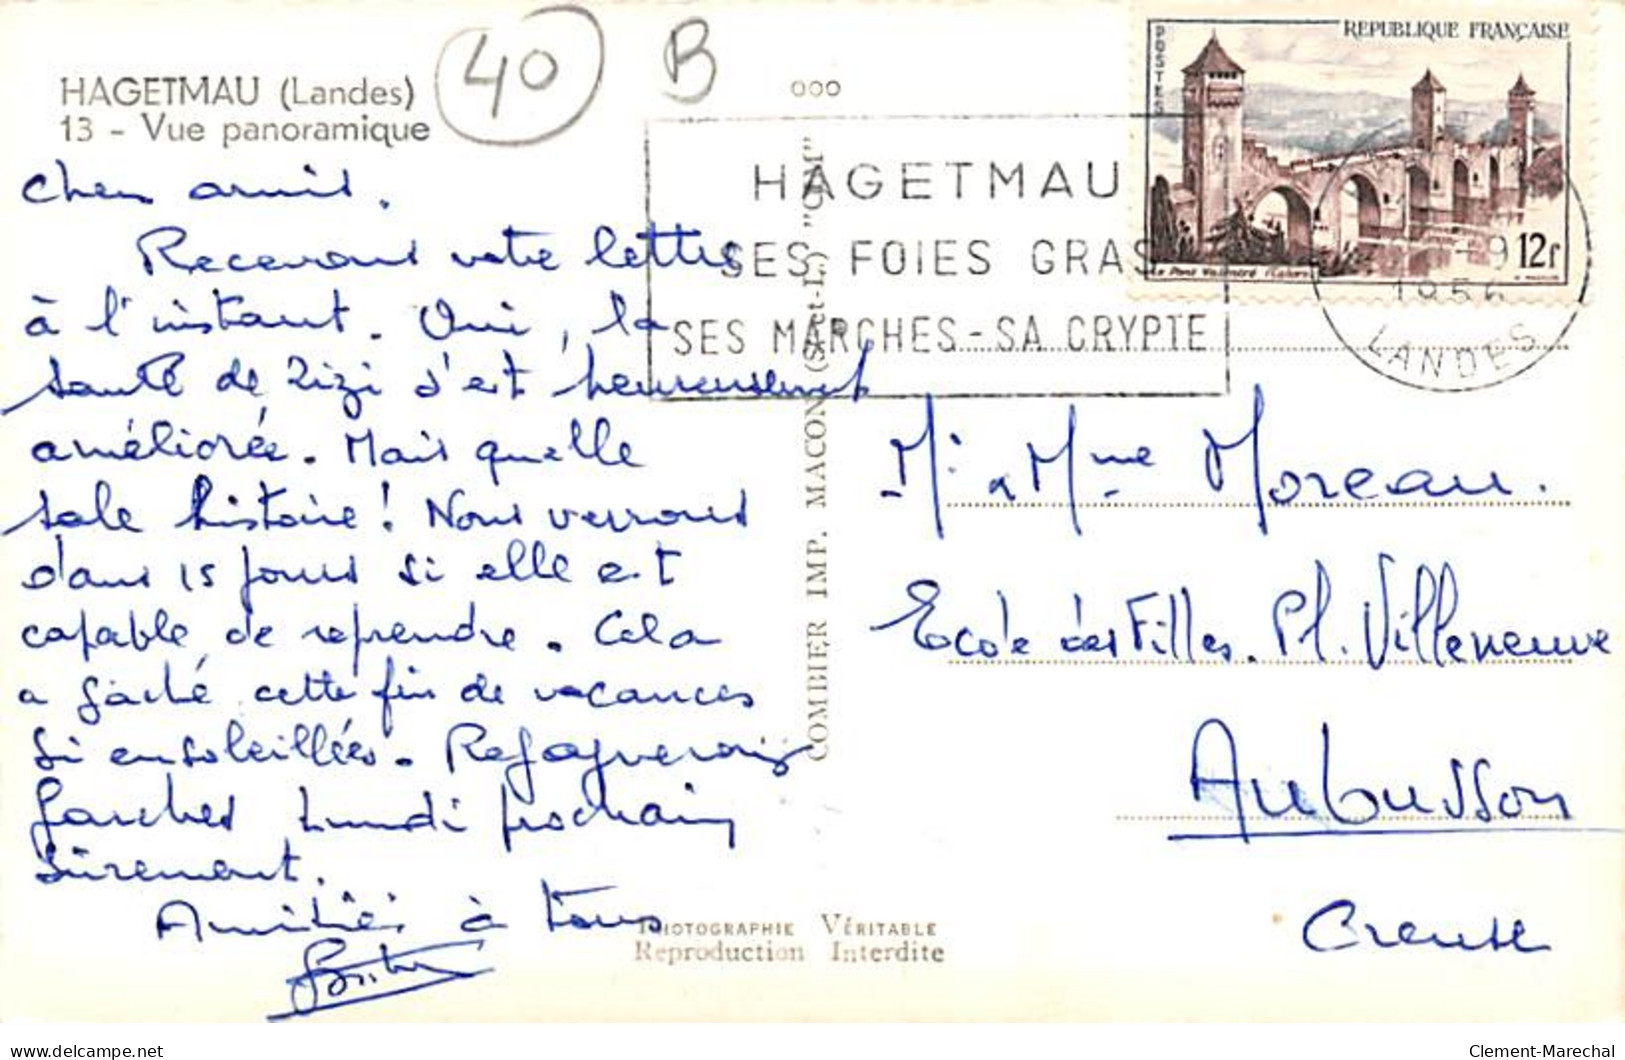 HAGETMAU (Landes)
13 - Vue panoramique
40
B
000
Chers amis.
Recevons votre lettre
à l'instant. Oui, la
santé de Zizi s'est heureusement
améliorée. Mais quelle
sale histoire! Nous verrons
dans 15 jours si elle est
capable de reprendre. Cela
a gâché cette fin de vacances
si ensoleillée. Regagnerons
Garches Lundi prochain
sûrement.
Amitiés à tous
HAGETMAU
SES FOIES GRAS
SES MARCHES - SA CRYPTE
COMBIER IMP. MACON (S.-et-L.) "CIM"
PHOTOGRAPHIE VÉRITABLE
Reproduction Interdite
REPUBLIQUE FRANÇAISE
POSTES
Le Pont Valentré (Cahors)
12f
-9
1956
LANDES
Mr & Mme Moreau.
Ecole des Filles. Pl. Villeneuve
Aubusson
Creuse
Clement-Marechal